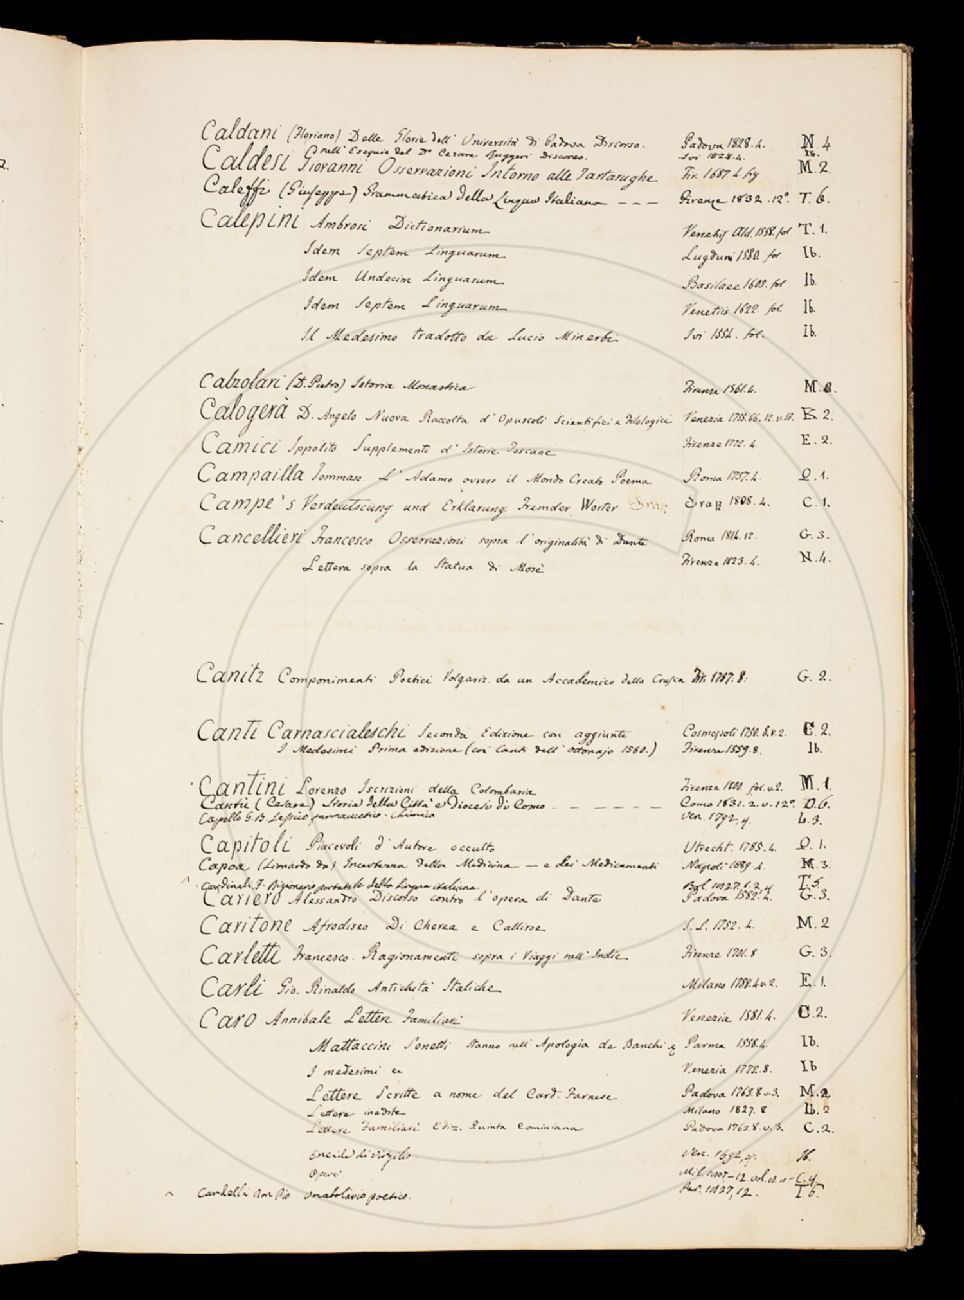 Caldani (Floriano) Delle Glorie dell' Università di Padova Discorso. Padova 1828. 4. N 4
nell' Esequie del Dr Cesare Ruggeri Discorso. Ivi 1828. 4. Ib.
Caldesi Giovanni Osservazioni Intorno alle Tartarughe Fir. 1687. 4 fig M. 2
Caleffi (Giuseppe) Grammatica della Lingua Italiana – – – Firenze 1832. 12º T. 6.
Calepini Ambrosi Dictionarium Venetijs Ald. 1558. fol T. 1.
Idem Septem Linguarum Lugduni 1580. fol Ib.
Idem Undecim Linguarum Basileae 1605. fol Ib.
Idem Septem Linguarum Venetiis 1622. fol. Ib.
Il Medesimo tradotto da Lucio Minerbi Ivi 1552. fol. Ib.
Calzolari (D. Pietro) Istoria Monastica Firenze 1561. 4. M. 8.
Calogerà D. Angelo Nuova Raccolta d' Opuscoli Scientifici e Filologici Venezia K. 2.
Camici Ippolito Supplementi d' Istorie Toscane Firenze 1772. 4 E. 2.
Campailla Tommaso L' Adamo ovvero il Mondo Creato Poema Roma 1737. 4. Q. 1.
Campe's Verdeutscung und Erklarung Fremder Worter Graz 1808. 4. C. 1.
Cancellieri Francesco Osservazioni sopra l' originalità di Dante Roma 1814. 12. G. 3.
Lettera sopra la Statua di Mosè Firenze 1823. 4. N. 4.
Canitz Componimenti Poetici Volgariz. da un Accademico della Crusca Fir. 1757. 8. G. 2.
Canti Carnascialeschi Seconda Edizione con aggiunte Cosmopoli 1750. 8. v. 2. C. 2.
I Medesimi Prima edizione (con Canti dell' Ottonajo 1560.) Firenze 1559. 8. Ib.
Cantini Lorenzo Iscrizioni della Colombaria Firenze 1800 fol. M. 1.
Cantù (Cesare) Storia della Città e Diocesi di Como – – – – – – Como 1831. 2. v. 12º. D. 6.
Capello G. B. Lessico farmaceutico-chimico Ven. 1792, 4. L. 3.
Capitoli Piacevoli d' Autore occulto Utrecht. 1785. 4. Q. 1.
Capoa (Lionardo da) Incertezza della Medicina – e dei Medicamenti Napoli 1689. 4. M. 3.
Cardinali F. Dizionario portatile della Lingua italiana. Bol. 1827. T. 5
Cariero Alessandro Discorso contro l' opera di Dante Padova 1582. 4. G. 3.
Caritone Afrodiseo Di Cherea e Calliroe S. L. 1752. 4. M. 2
Carletti Francesco Ragionamenti sopra i Viaggi nell' Indie Firenze 1701. 8 G. 3.
Carli Gio. Rinaldo Antichità Italiche Milano 1788. E. 1.
Caro Annibale Lettere Familiari Venezia 1581. 4. C. 2.
Mattaccini Sonetti stanno nell' Apologia de Banchi Parma 1558. 4 Ib.
I medesimi Venezia 1772. 8. Ib
Lettere Scritte a nome del Card. Farnese Padova 1765. 8. v. 3. M. 2
Lettere inedite Milano 1827. 8 Ib. 2
Lettere Familiari Ediz. Quinta Cominiana Padova 1763. 8. v. 3. C. 2.
Eneide di Virgilio Ven. 1692, 4. Ib.
Opere Mil. C. 4.
Cardelli Vocabolario poetico. Par. 1827, 12. T. 6.